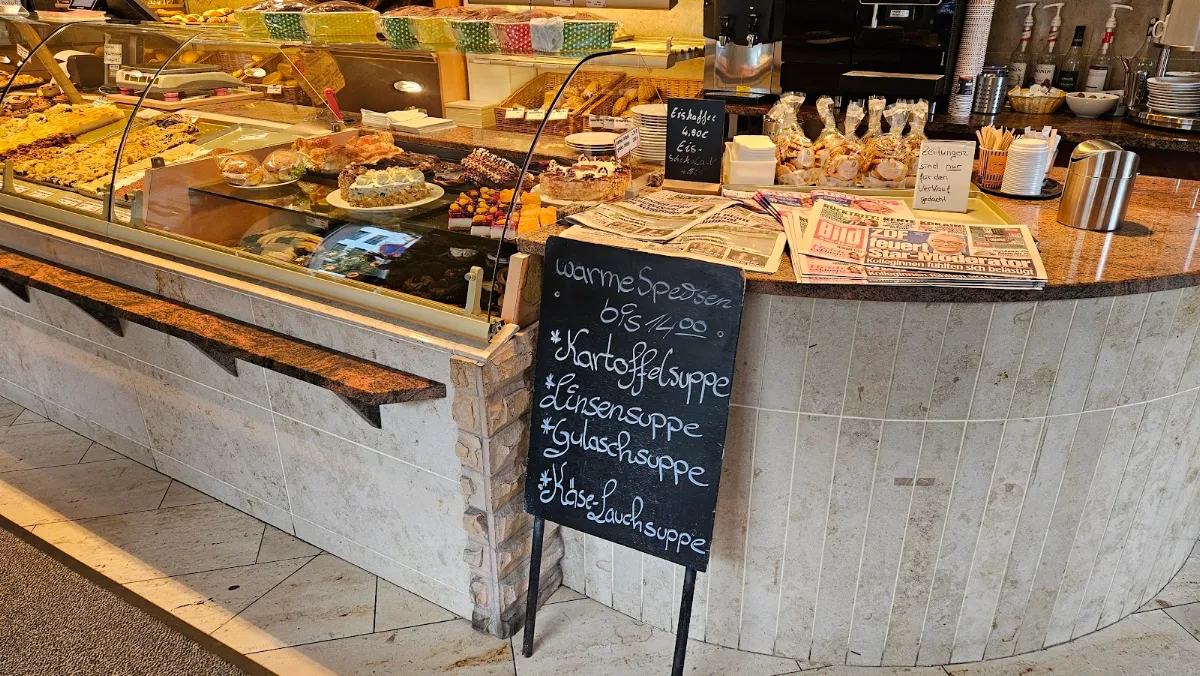 Eiskaffee
4,90€
Eis-
Schokolad
Zeitungen
sind nur
für den
Verkauf
gedacht
Bild
ZDF
feuert
Star-Moderator
Kolleginnen fühlten sich belästigt
warme Speisen
bis 14⁰⁰
*Kartoffelsuppe
*Linsensuppe
*Gulaschsuppe
*Käse-Lauchsuppe